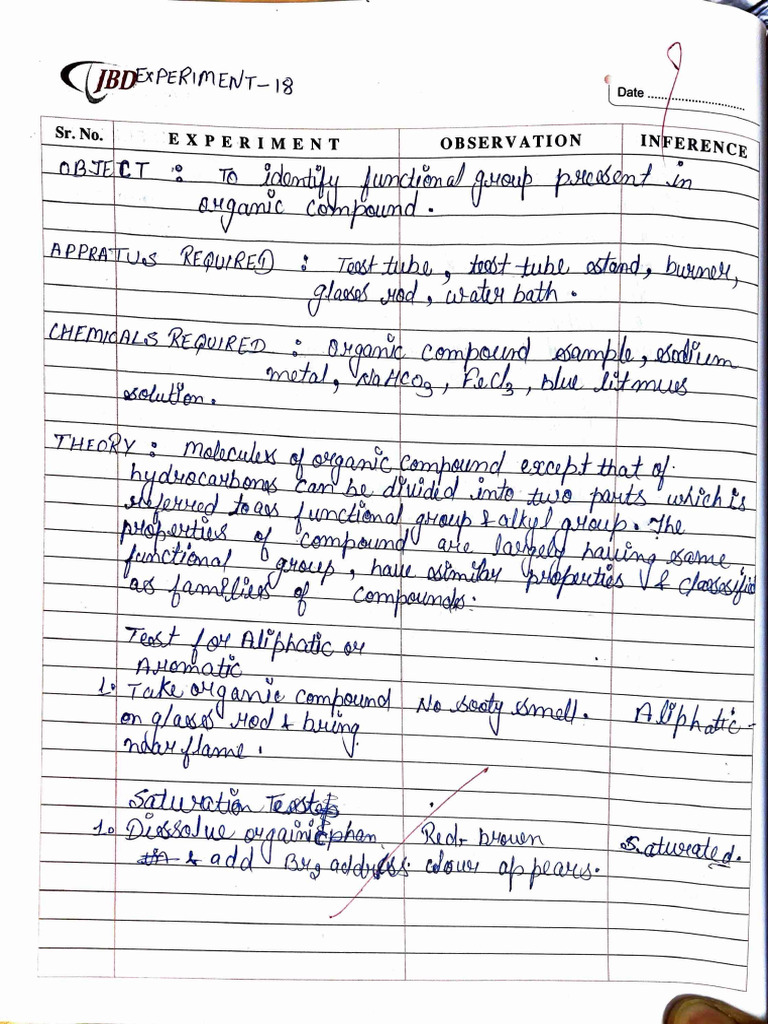 JBD EXPERIMENT-18
Date
Sr. No. EXPERIMENT OBSERVATION INFERENCE
OBJECT : To identify functional group present in
organic compound.
APPRATUS REQUIRED : Test tube, test tube stand, burner,
glass rod, water bath.
CHEMICALS REQUIRED : Organic compound sample, sodium
metal, NaHCO3, FeCl3, blue litmus
solution.
THEORY : Molecules of organic compound except that of
hydrocarbons can be divided into two parts which is
referred to as functional group & alkyl group. The
properties of compound are largely having same
functional group, have similar properties & classified
as families of compounds.
Test for Aliphatic or
Aromatic
1. Take organic compound No sooty smell. Aliphatic-
on glass rod & bring
near flame.
Saturation Tests
1. Dissolve Red-brown Saturated.
& add Br2 colour appears.